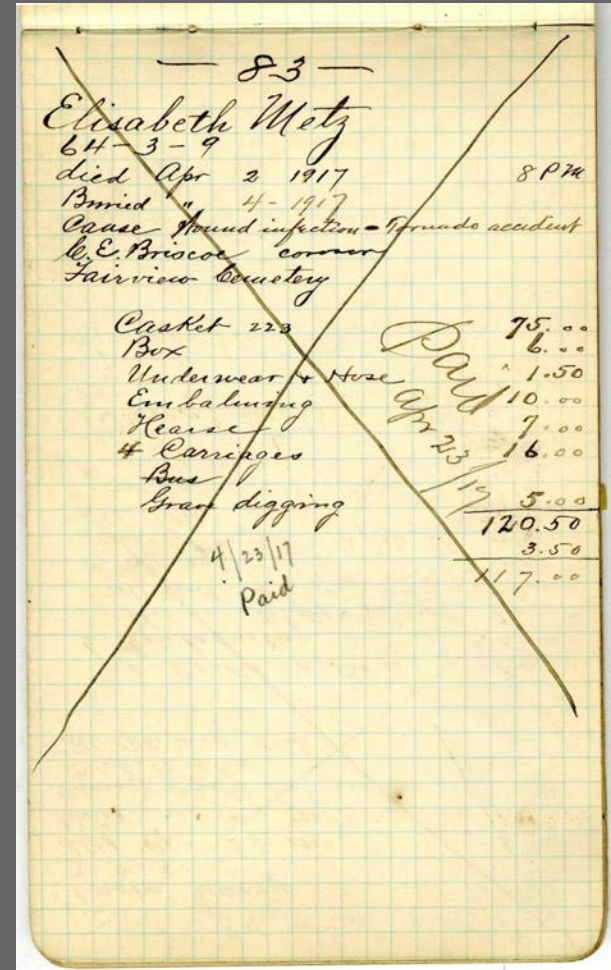 — 83 —
Elisabeth Metz
64-3-9
died Apr 2 1917 8 PM
Buried " 4-1917
Cause Wound infection - Tornado accident
C.E. Briscoe coroner
Fairview Cemetery
Casket 223 75.00
Box 6.00
Underwear & Hose 1.50
Embalming 10.00
Hearse 7.00
4 Carriages 16.00
Bus
Grave digging 5.00
120.50
3.50
117.00
Paid
Apr 23/17
4/23/17
Paid